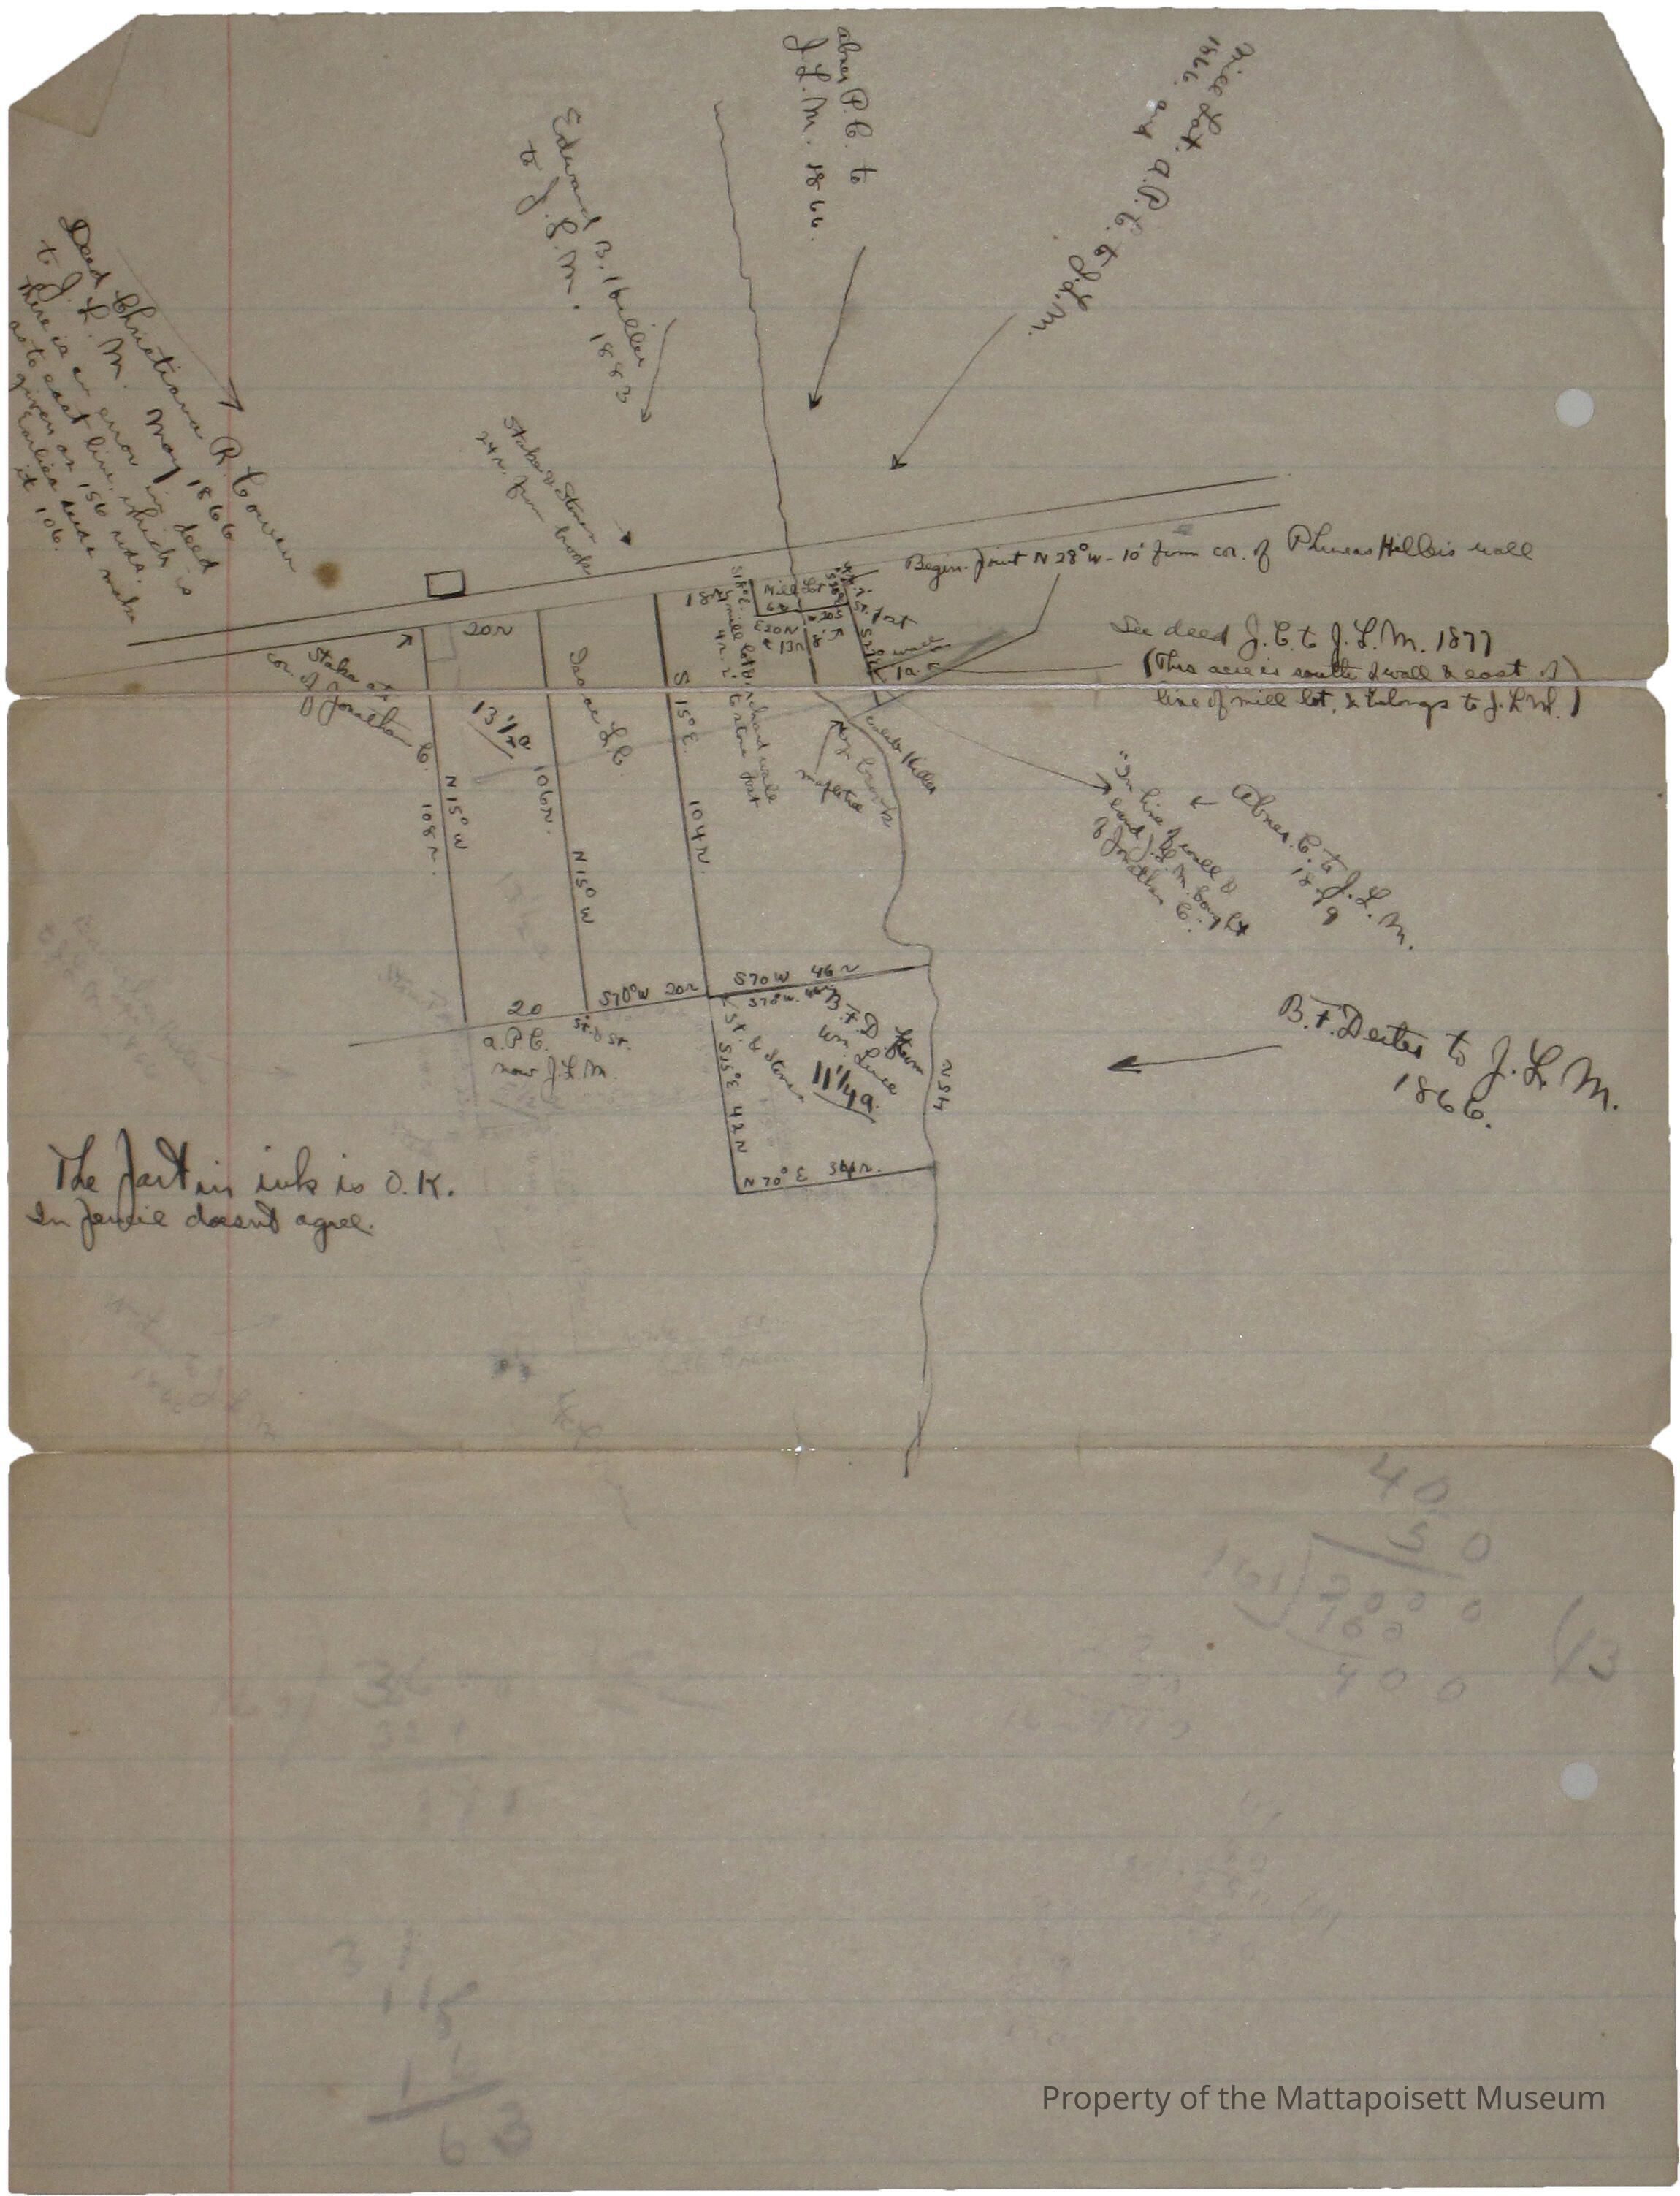 Mill Lot. A.P.C. to J.L.M.
1866. and
Abner P.C. to
J.L.M. 1866.
Edward B. Hiller
to J.L.M. 1883
Deed Christiana R. Cowen
to J.L.M. May 1866
There is an error in deed
as to east line, which is
given as 156 rds.
Earlier deeds make
it 106.
Stake & Stones
24 r. from brook
Begin. point N 28° W - 10' from cor. of Phineas Hiller's wall
See deed J.C. to J.L.M. 1877
(This acre is south of wall & east of
line of mill lot, & belongs to J.L.M.)
Stake at
cor. of Jonathan C.
20 r
18 r
Mill Lot
6 r
E 20 N
13 r
8'
St. post
wall
1 a.
mill lot
4 r.
to stone post
13 1/2 a
Isaac L.C.
S 15° E
104 r.
106 r.
N 15° W
N 15° W
108 r.
brook
Caleb Hiller
"In line of wall &
land J.L.M. bought
of Jonathan C."
Abner C. to J.L.M.
1879
20
S 70° W 20 r
S 70 W 46 r
S 70 W.
A.P.C.
now J.L.M.
St. & St.
St. & Stone
B.F.D. from
Wm. Luce
11 1/4 a.
S 15° E 42 r
45 r
N 70° E 34 r.
B.F. Dexter to J.L.M.
1866.
The part in ink is O.K.
In pencil doesn't agree.
40
50
2000
400
31
115
63
Property of the Mattapoisett Museum